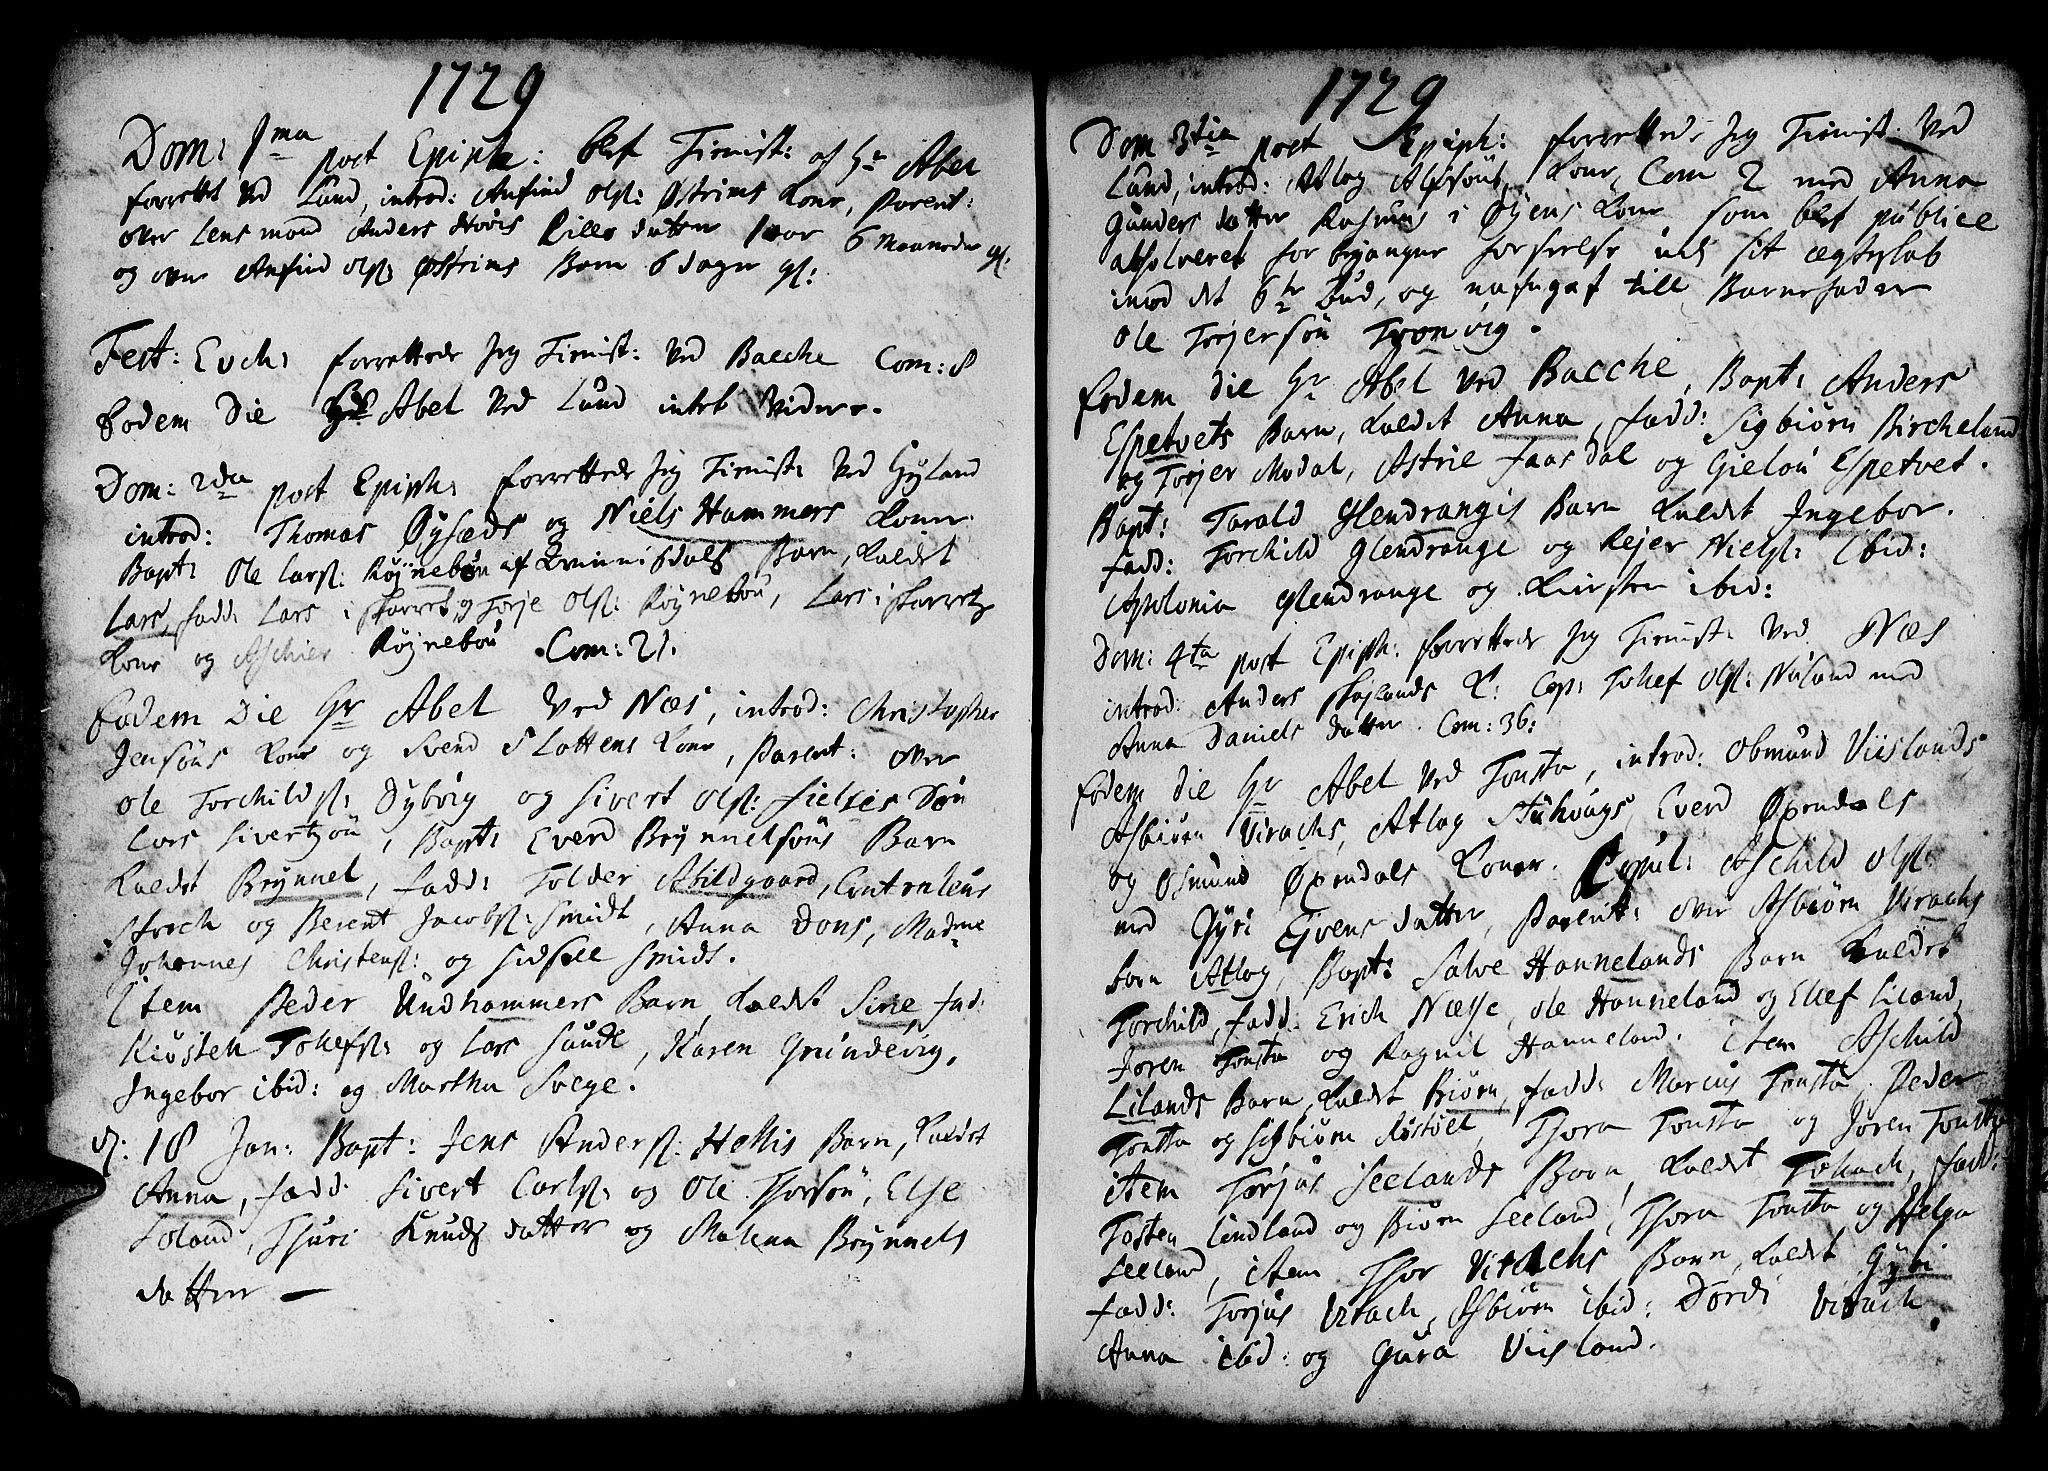 1729
Dom: 1ma post Epiph: blef Tienist: af Hr Abel
forrettet Ved Lund, introd: Anfind Olss: Østrims Kone, Parent:
over Lensmand Anders Hovis Lille datter 1 aar 6 Maaneder gl:
og over Anfind Olss: Østrims Barn 6 dager gl:
Fest: Evch: forrettede Jeg Tienist: Ved Bacche Com: 8
Eodem Die Hr Abel Ved Lund intet Videre.
Dom: 2da post Epiph: forrettede Jeg Tienist: Ved Gyland
introd: Thomas Øysæds og Niels Hammers Koner
Bapt: Ole Larss: Røynebøu af Qvinnisdals Barn, Kaldet
Lars, fadd: Lars i Skarret og Torje Olss: Røynebøu, Lars i Skarretz
Kone og Aschier Røynebøu. Com: 21.
Eodem Die Hr Abel Ved Næs, introd: Christopher
Jensøns Kone og Svend Slottens Kone, Parent: over
Ole Torchilds: Dybvig og Sivert Olss: Fielses Søn
Lars Sivertzøn, Bapt: Everd Brynnelsøns Barn
Kaldet Brynnel, fadd: Tolder Abildgaard, Controleur
Storch og Berent Jacobss: Smidt, Anna Dons, Madme
Johannes Christens: og Sidsell Smids.
Item Peder Undhammers Barn Kaldet Sirie fad:
Kiøsteh Tollefss: og Lars Sande, Karen Grundevig,
Ingebor ibid: og Martha Svege.
d: 18 Jan: Bapt: Jens Anderss: Hellis Barn, Kaldet
Anna, fadd: Sivert Carlss: og Ole Thorsøn, Else
Loland, Thuri Knuds datter og Malena Brynnels
datter —
1729
Dom 3tia post Epiph: forrettede Jeg Tienist: Ved
Lund, introd: Atlag Alfsøns Kone, Com 2 med Anna
Gunders datter Rasmus i Øyens Kone som blef publice
absolveret for begangne forseelse udi sit ægteskab
imod det 6te Bud, og udgaf till Barnefader
Ole Torjersøn Tronvig.
Eodem die Hr Abel Ved Bacche, Bapt: Anders
Espetvets Barn, Kaldet Anna, fadd: Sigbiørn Bircheland
og Torjer Modal, Astrie Faasdal og Gielou Espetvet.
Bapt: Tarald Glendrangis Barn Kaldet Ingebor.
fadd: Torchild Glendrange og Rejer Nielss: ibid:
Apolonia Glendrange og Kiersten ibid:
Dom: 4ta post Epiph: forrettede Jeg Tienist: Ved Næs
introd: Anders Støylands K: Cop: Tollef Olss: Nuland med
Anna Daniels datter. Com: 36:
Eodem die Hr Abel Ved Tonsta, introd: Obmund Viislands
Asbiørn Virachs, Atlag Stuhougs, Everd Øxendals
og Osmund Øxendals Koner. Copul: Aschild Olss:
med Gyri Ejvens datter, Parent: over Asbiørn Virachs
barn Atlag, Bapt: Salve Hannelands Barn Kaldet
Torchild, fadd: Erich Næsse, Ole Hanneland og Ellef Liland
Joren Tonsta og Ragnil Hanneland. item Aschild
Lilands Barn Kaldet Biørn, fadd: Marcus Tonsta, Peder
Tonsta og Sigbiørn Røstøel, Thora Tonsta og Joren Tonsta
item Torjus Seelands Barn Kaldet Tollach, fadd:
Tosten Lindland og Biørn Seeland, Thora Tonsta og Helga
Seeland, item Thor Virachs Barn, Kaldet Gyri
fadd: Torjus Virach, Asbiørn ibid: Dordi Virach.
Anna ibid: og Gura Viisland.